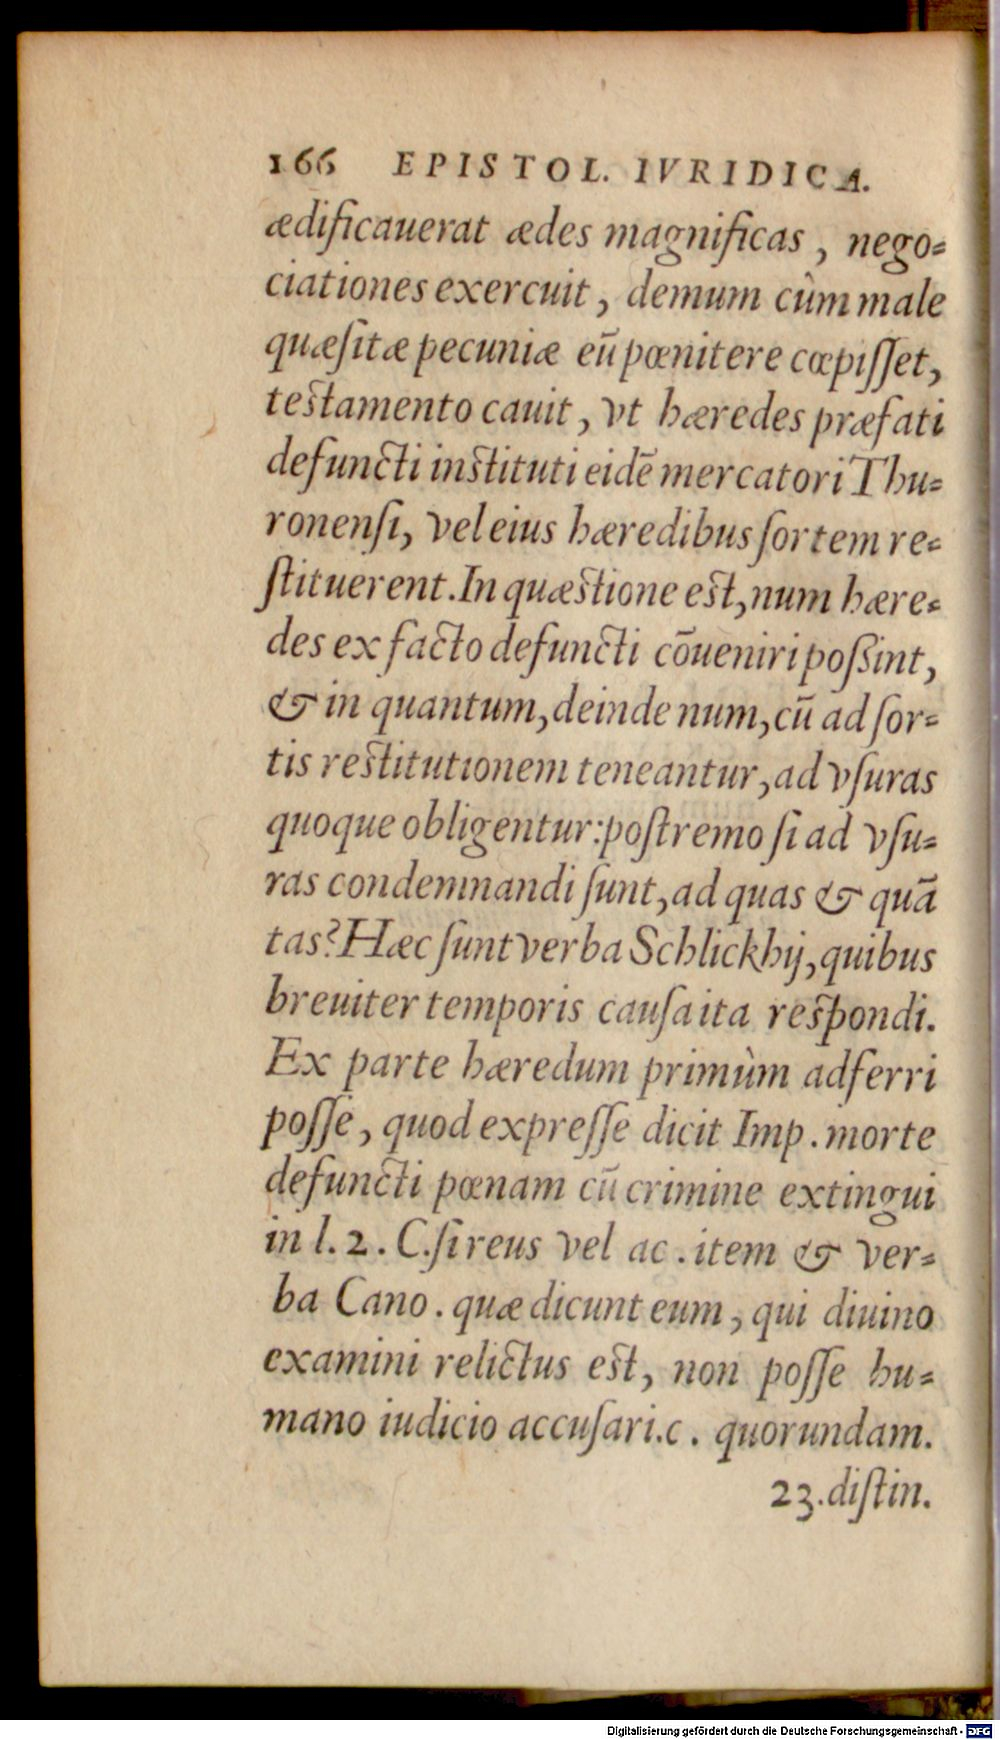 166 EPISTOL. IVRIDICA.
ædificauerat ædes magnificas, nego-
ciationes exercuit, demum cùm male
quæſitæ pecuniæ eū pœnitere cœpiſſet,
teſtamento cauit, vt hæredes præfati
defuncti inſtituti eidē mercatori Thu-
ronenſi, vel eius hæredibus ſortem re-
ſtituerent. In quæſtione eſt, num hære-
des ex facto defuncti cōueniri poßint,
& in quantum, deinde num, cū ad ſor-
tis reſtitutionem teneantur, ad vſuras
quoque obligentur: poſtremo ſi ad vſu-
ras condemnandi ſunt, ad quas & quā
tas? Hæc ſunt verba Schlickhij, quibus
breuiter temporis cauſa ita reſpondi.
Ex parte hæredum primùm adferri
poſſe, quod expreſſe dicit Imp. morte
defuncti pœnam cū crimine extingui
in l. 2. C. ſi reus vel ac. item & ver-
ba Cano. quæ dicunt eum, qui diuino
examini relictus eſt, non poſſe hu-
mano iudicio accuſari. c. quorundam.
23. diſtin.
Digitalisierung gefördert durch die Deutsche Forschungsgemeinschaft - DFG